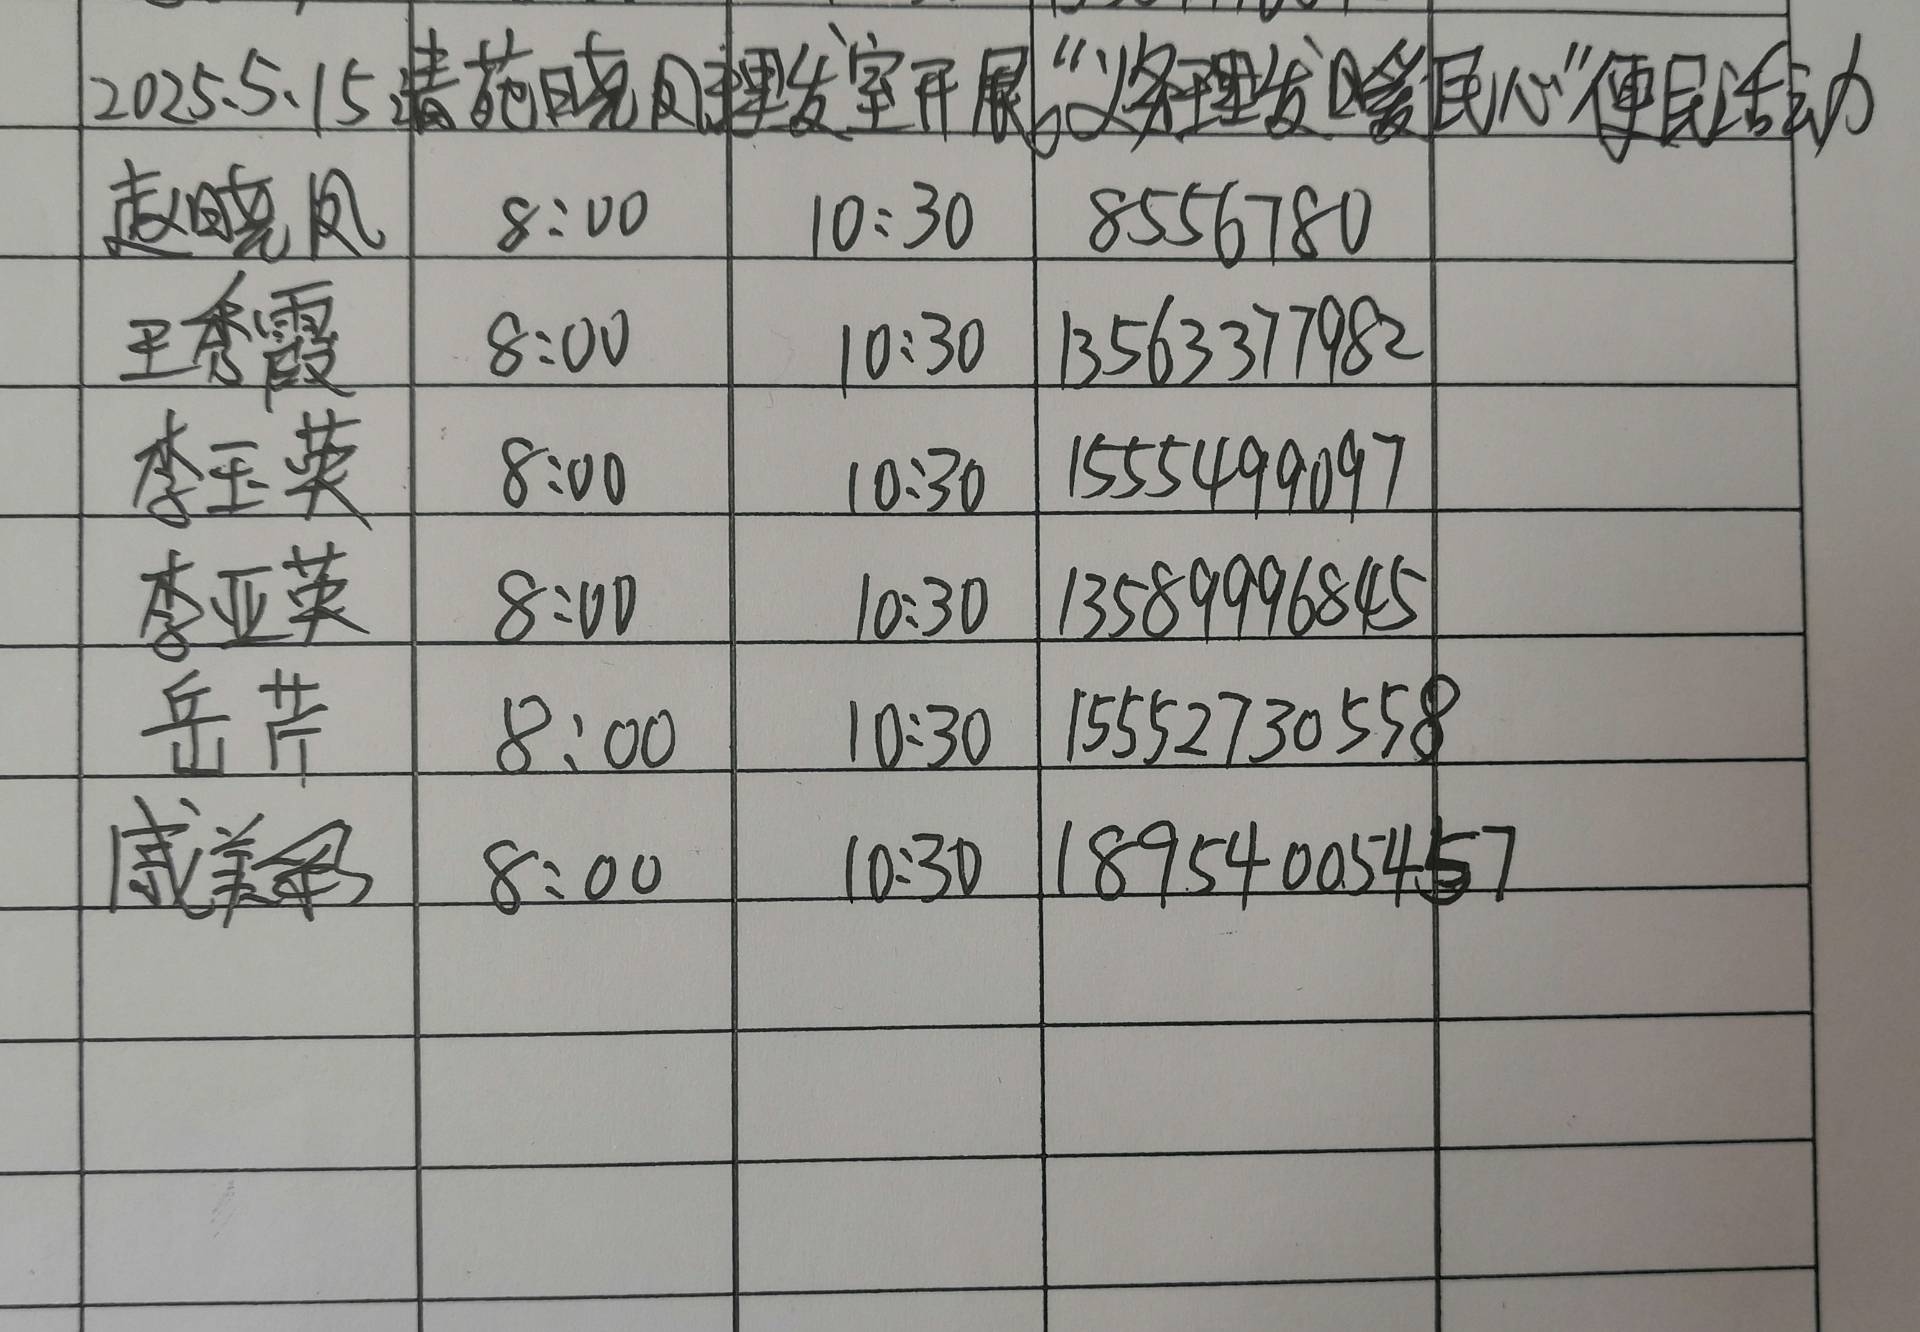 2025.5.15 清苑晓风理发室开展“义务理发暖民心”便民活动
赵晓风 8:00 10:30 8556780
王秀霞 8:00 10:30 13563377982
李玉英 8:00 10:30 1555499097
李亚英 8:00 10:30 13589996845
岳芹 8:00 10:30 15552730558
戚美彩 8:00 10:30 18954005457